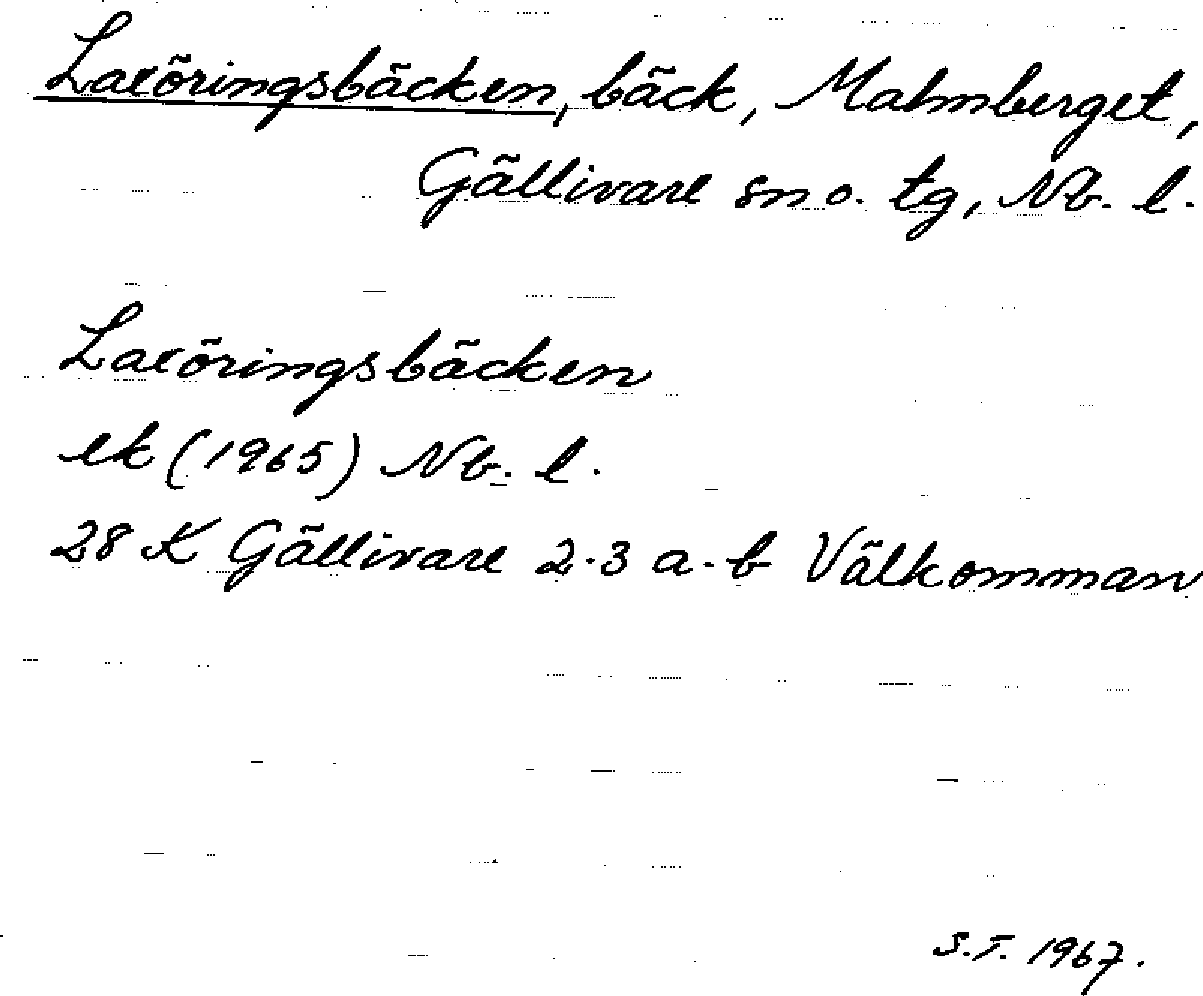 Laxöringsbäcken, bäck, Malmberget,
Gällivare sn o. tg, Nb. l.
Laxöringsbäcken
ek (1965) Nb. l.
28 K Gällivare 2-3 a-b Välkomman
S.T. 1967.